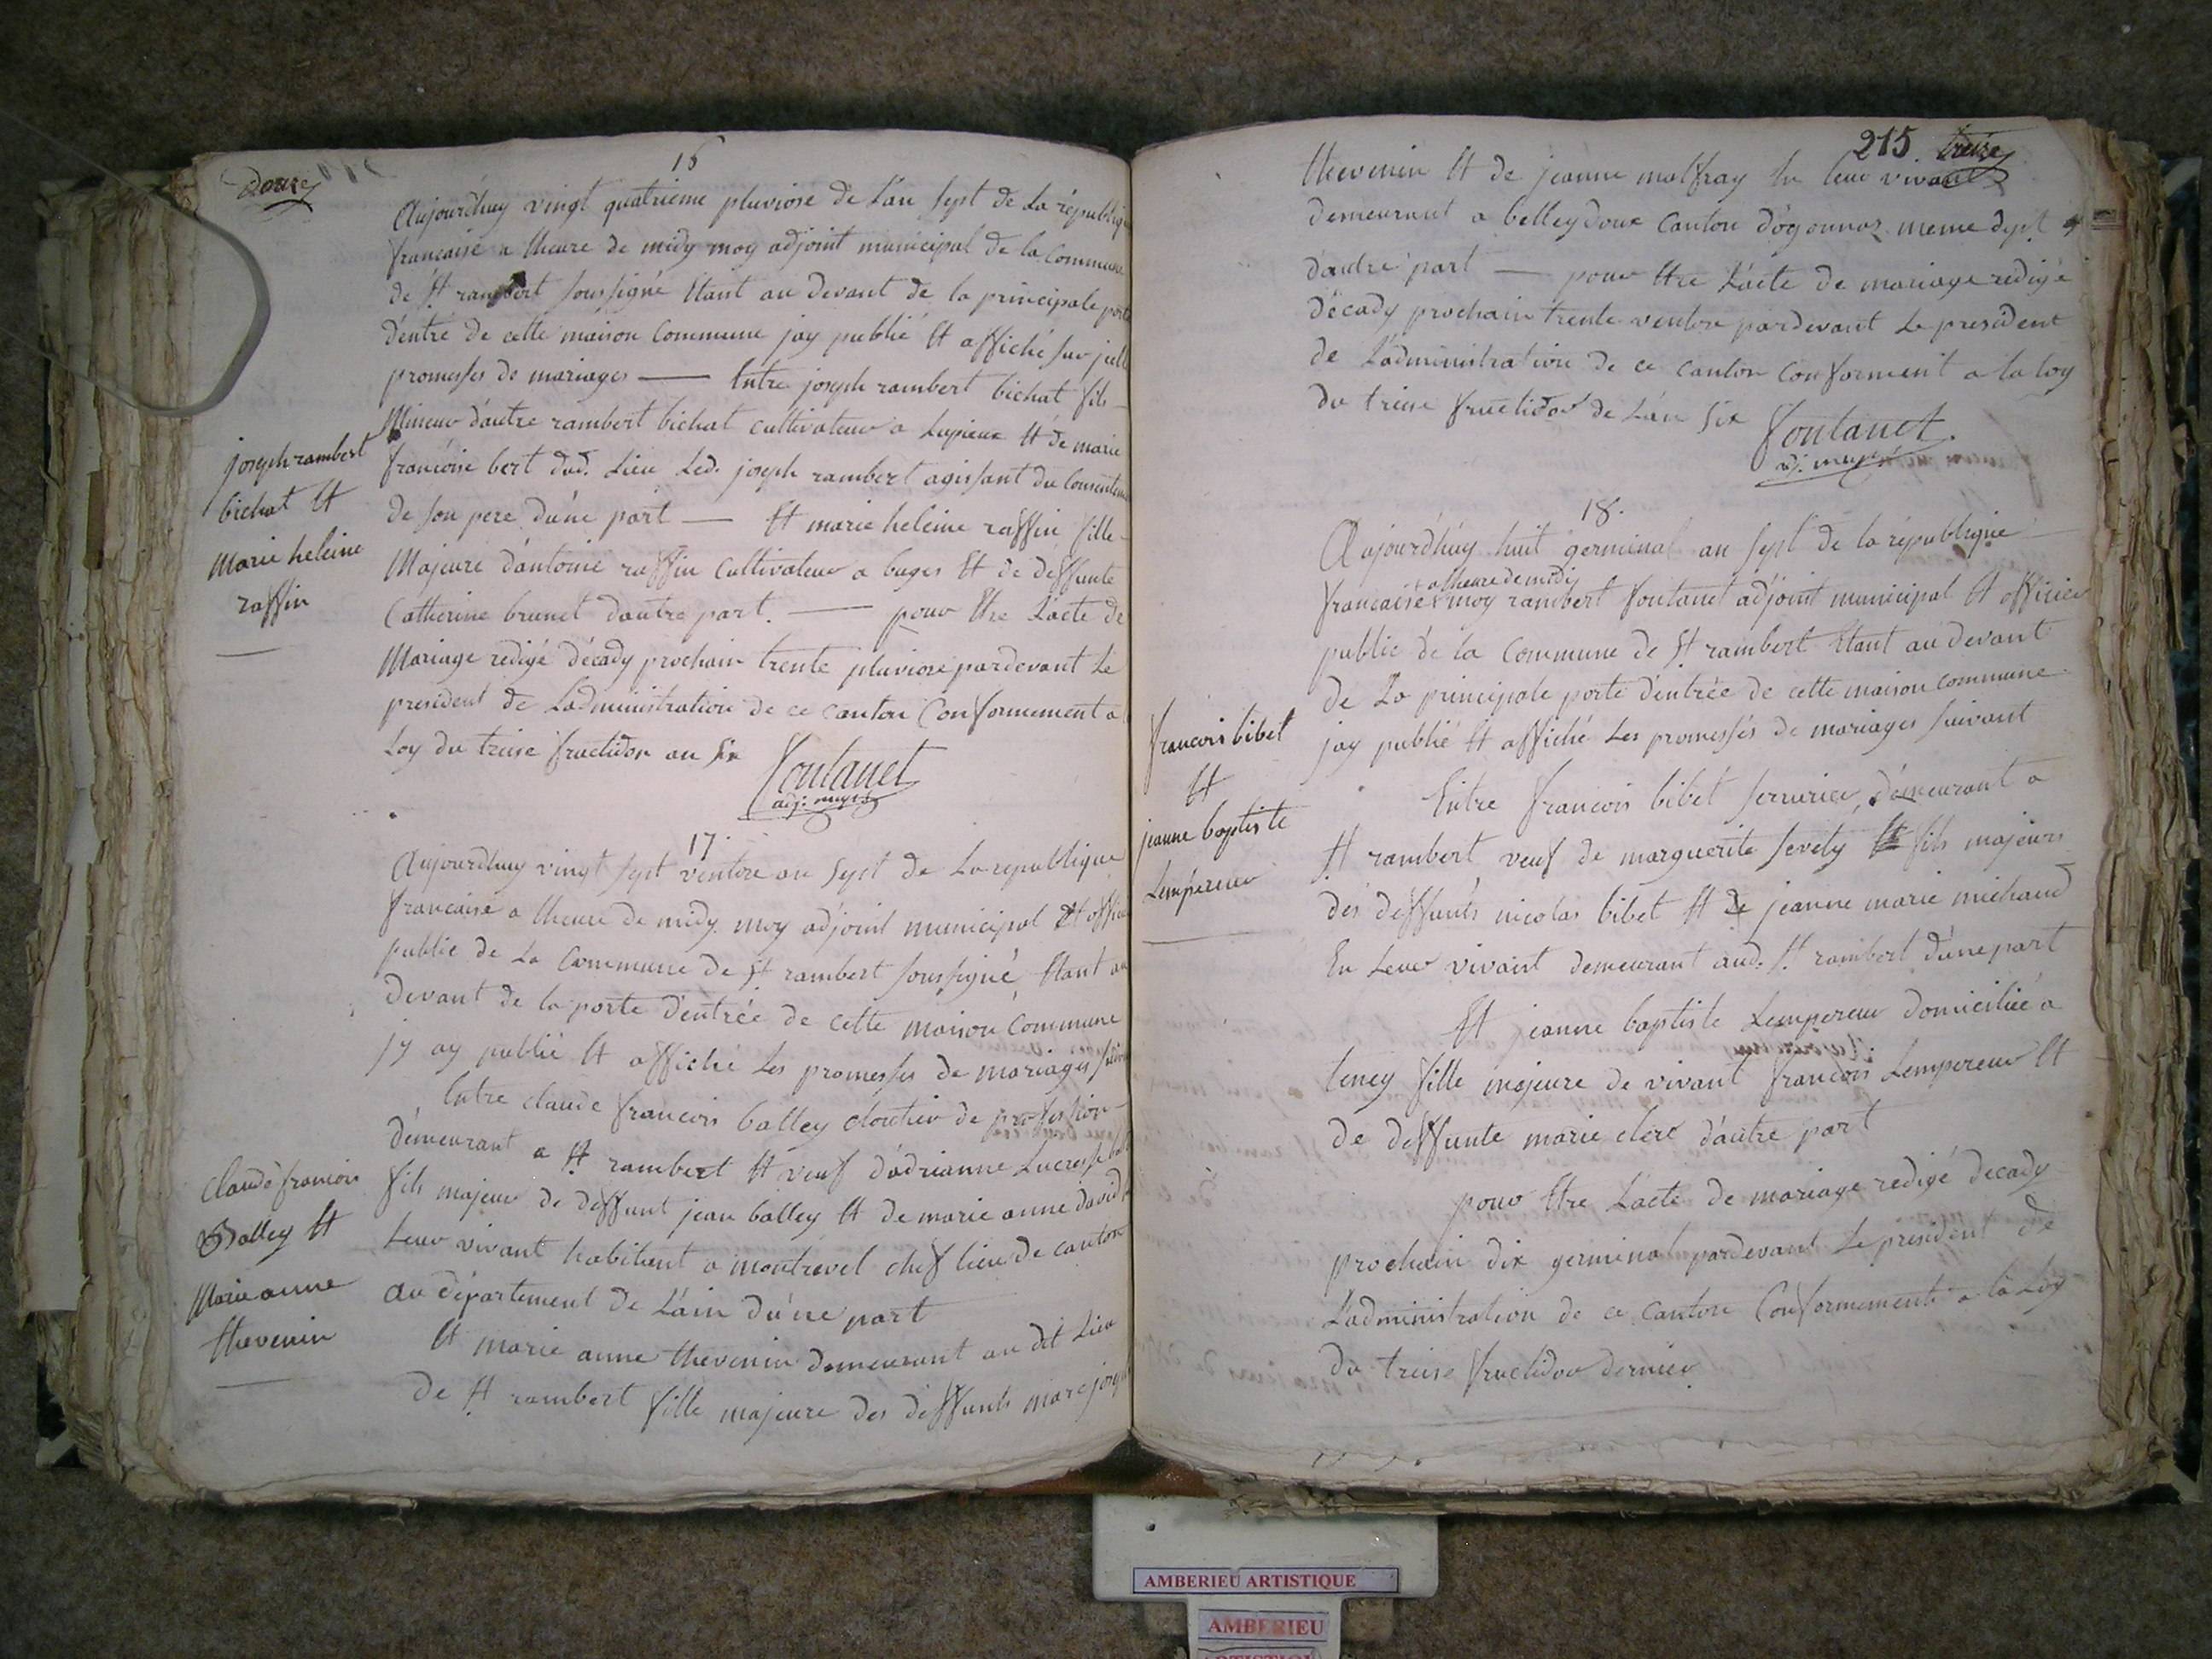 douze
16
Aujourdhuy vingt quatrieme pluviose de L'an Sept de La républiq
francaise a lheure de midy moy adjoint municipal de la Commune
de St rambert soussigné Etant au devant de la principale porte
d'entré de cette maison Commune jay publié Et affiché
promesses de mariages — Entre joseph rambert bichat fils
Mineur d'autre rambert bichat cultivateur a Et de marie
francoise bert dud. Lieu Led. joseph rambert agissant du Consentem
de son pere d'une part — Et marie heleine raffin fille
Majeure d'antoine raffin Cultivateur a buges Et de deffunte
Catherine brunet dautre part. — pour Etre L'acte de
Mariage redigé décady prochain trente pluviose pardevant Le
president de Ladministration de ce canton Conformement a
Loy du treise fructidor an Six
Fontanet
adj. mupal
joseph rambert
bichat Et
Marie heleine
raffin
17.
Aujourdhuy vingt sept ventose an Sept de La republique
francaise a lheure de midy moy adjoint municipal Et offici
public de La Commune de St rambert soussigné Etant au
devant de la porte d'entrée de cette maison Commune
jy ay publié Et affiché Les promesses de mariages
Entre claude francois balley cloutier de profession
demeurant a St rambert Et veuf d'adrianne Lucresse
fils majeur de deffunt jean balley Et de marie anne david
Leur vivant habitant a montrevel chef lieu de canton
au département de L'ain d'une part
Et marie anne thevenin demeurant au dit Lieu
de St rambert fille majeure des deffunts marc josep
Claude francois
Balley Et
Marie anne
thevenin
215 treize
thevenin Et de jeanne malfray En leur vivant
demeurant a belleydoux canton d'oyonnaz meme dept
d'autre part — pour Etre L'acte de mariage redigé
décady prochain trente ventose pardevant Le president
de L'administration de ce canton conforment a la loy
du treise fructidor de L'an Six
Fontanet
adj. mupal
18.
Aujourdhuy huit germinal an sept de la république
a lheure de midy
francaise moy rambert fontanet adjoint municipal Et officier
public de la Commune de St rambert Etant au devant
de La principale porte d'entrée de cette maison commune
jay publié Et affiché Les promesses de mariages suivant
Entre francois bibet serrurier, demeurant a
St rambert veuf de marguerite fils majeurs
des deffunts nicolas bibet Et de jeanne marie michaud
En Leur vivant demeurant aud. St rambert d'une part
Et jeanne baptiste Lempereur domiciliée a
teney fille majeure de vivant francois Lempereur Et
de deffunte marie clerc d'autre part
pour Etre L'acte de mariage redigé decady
prochain dix germinal pardevant Le president de
L'administration de ce canton Conformement a la Loy
du treise fructidor dernier
francois bibet
Et
jeanne baptiste
Lempereur
AMBERIEU ARTISTIQUE
AMBERIEU
ARTISTIQUE